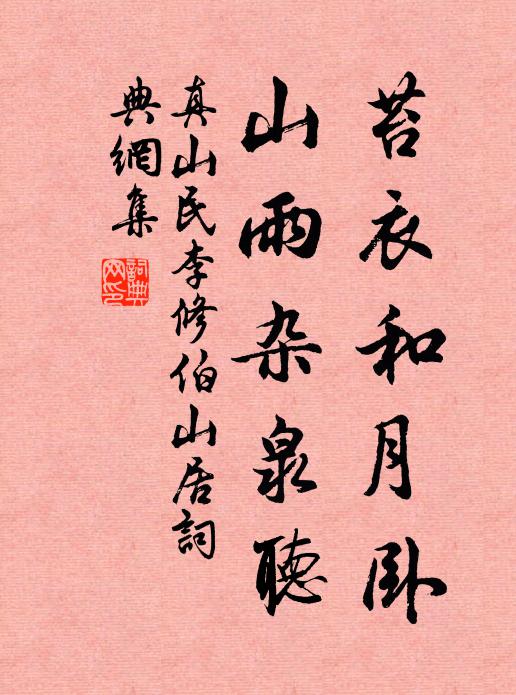 苔衣和月卧
山雨杂泉聽
真山民李修伯山居詞
典網集
詞典
网印